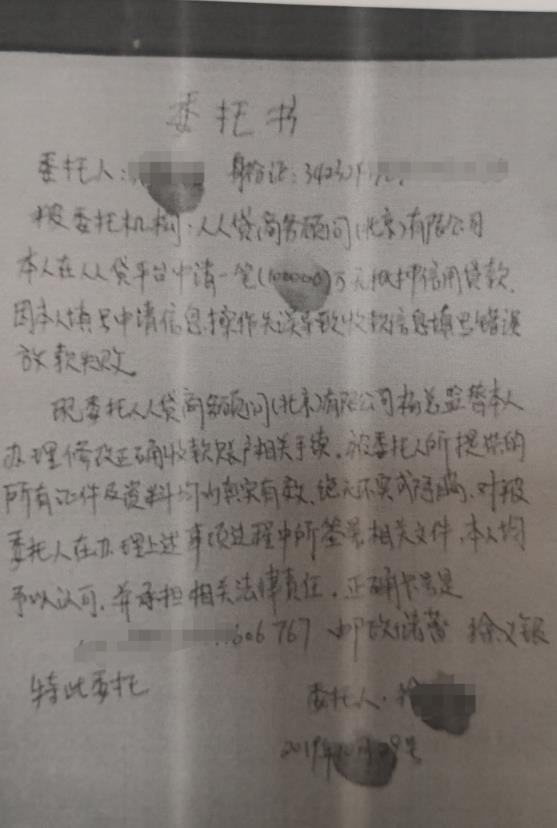 委托书
委托人: 身份证:342324197
被委托机构:人人贷商务顾问(北京)有限公司
本人在人人贷平台申请一笔(100000)万元抵押信用贷款,
因本人填写申请信息操作失误导致收款信息填写错误
放款失败。
现委托人人贷商务顾问(北京)有限公司杨总监替本人
办理修改正确收款账户相关手续,被委托人所提供的
所有证件及资料均为真实有效,绝无不实或隐瞒,对被
委托人在办理上述事项过程中所签署相关文件,本人均
予以认可,并承担相关法律责任,正确卡号是
606767 邮政储蓄 徐 银
特此委托 委托人:徐
2019年10月29号